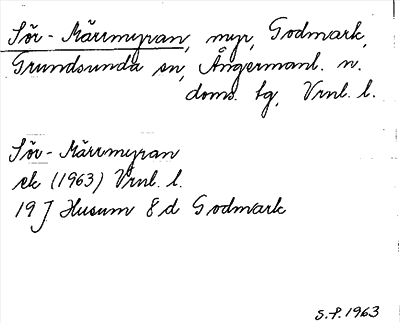 Sör-Märrmyran, myr, Godmark,
Grundsunda sn, Ångermanl. n.
doms. tg, Vrnl. l.
Sör-Märrmyran
ek (1963) Vrnl. l.
19 J Husum 8 d Godmark
S.P. 1963